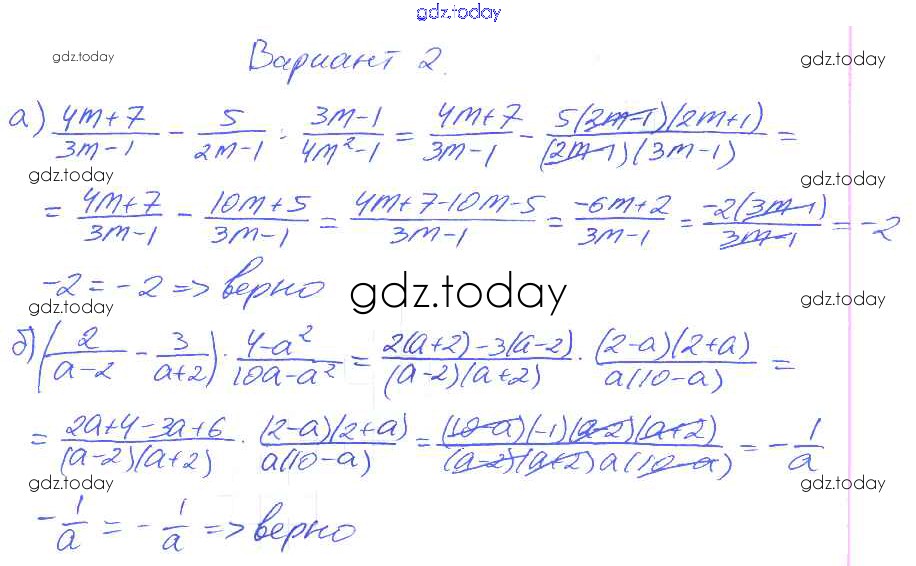 gdz.today
Вариант 2.
gdz.today gdz.today
а) (4m+7)/(3m-1) - 5/(2m-1) : (3m-1)/(4m²-1) = (4m+7)/(3m-1) - (5(2m-1)(2m+1))/((2m-1)(3m-1)) =
gdz.today gdz.today
= (4m+7)/(3m-1) - (10m+5)/(3m-1) = (4m+7-10m-5)/(3m-1) = (-6m+2)/(3m-1) = (-2(3m-1))/(3m-1) = -2
-2 = -2 => верно
gdz.today gdz.today gdz.today
б) (2/(a-2) - 3/(a+2)) · (4-a²)/(10a-a²) = (2(a+2)-3(a-2))/((a-2)(a+2)) · ((2-a)(2+a))/(a(10-a)) =
= (2a+4-3a+6)/((a-2)(a+2)) · ((2-a)(2+a))/(a(10-a)) = ((10-a)(-1)(a-2)(a+2))/((a-2)(a+2)a(10-a)) = -1/a
gdz.today gdz.today
-1/a = -1/a => верно